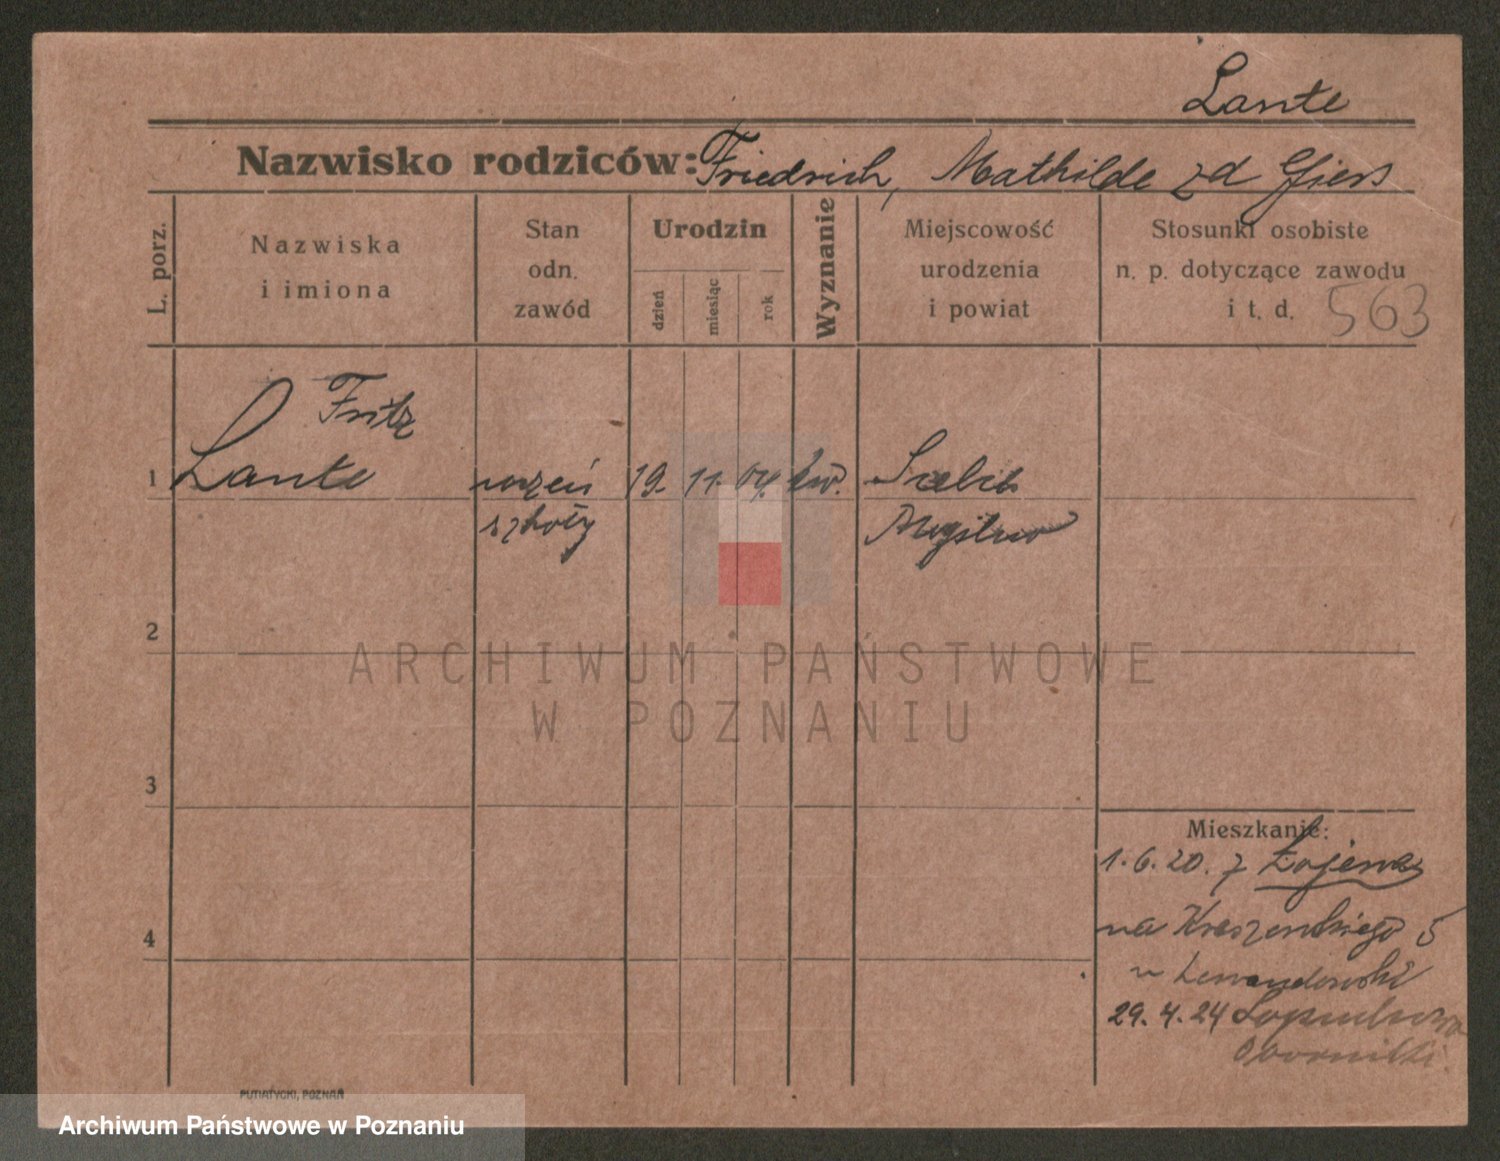 Lante
Nazwisko rodziców: Friedrich, Mathilde zd Giers
L. porz.
Nazwiska
i imiona
Stan
odn.
zawód
Urodzin
dzień
miesiąc
rok
Wyznanie
Miejscowość
urodzenia
i powiat
Stosunki osobiste
n. p. dotyczące zawodu
i t. d.
563
Fritz
1 Lante uczeń 19. 11. 04. ew.
szkoły Mogilno
2
ARCHIWUM PAŃSTWOWE
W POZNANIU
3
Mieszkanie:
1.6.20. z Łojewa
na Kraszewskiego 5
4
u Lewandowski
29.4.24 Łopuchowo
Oborniki
PUTIATYCKI, POZNAŃ
Archiwum Państwowe w Poznaniu